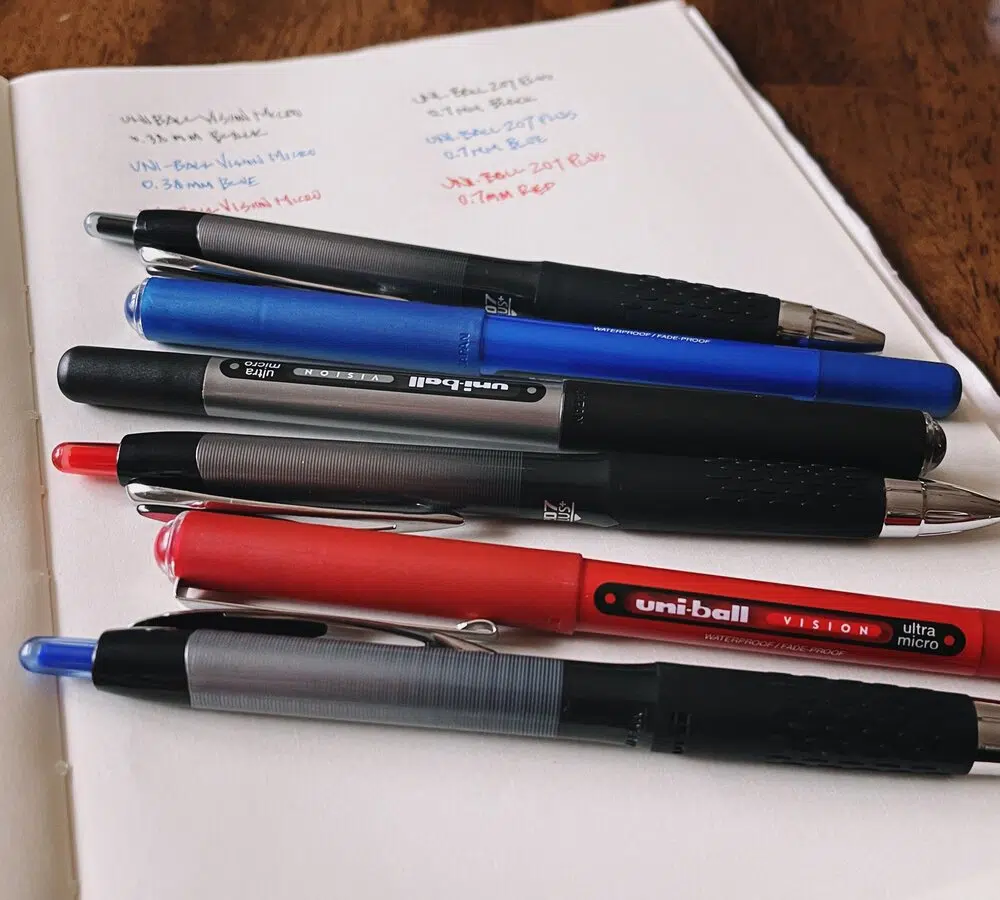 UNI BALL VISION MICRO
0.38 MM BLACK
UNI-BALL VISION MICRO
0.38 MM BLUE
BALL VISION MICRO
UNI-BALL 207 PLUS
0.7 MM BLACK
UNI-BALL 207 PLUS
0.7 MM BLUE
UNI-BALL 207 PLUS
0.7MM RED
07
US+
WATERPROOF / FADE-PROOF
JAPAN
uni-ball VISION ultra
micro
07
US+
uni-ball VISION ultra
micro
WATERPROOF / FADE-PROOF